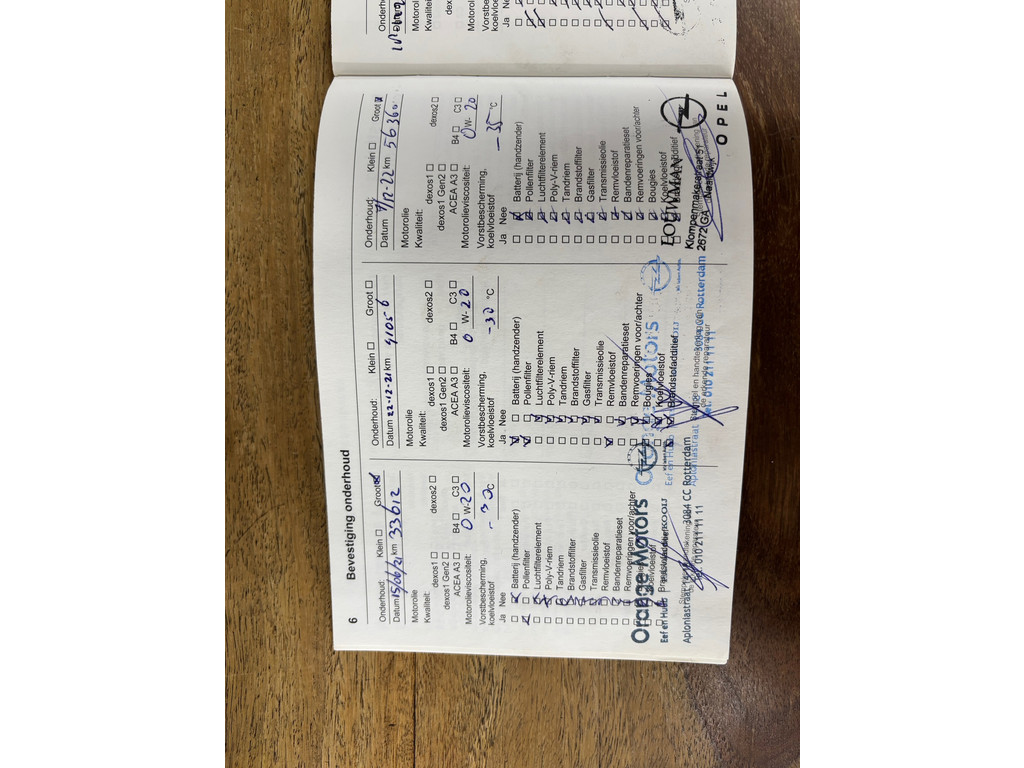 6
Bevestiging onderhoud
Onderhoud: Klein Groot
Datum 15/06/21 km 33612
Motorolie
Kwaliteit: dexos1 dexos2
dexos1 Gen2
ACEA A3 B4 C3
Motorolieviscositeit: 0 W- 20
Vorstbescherming,
koelvloeistof - 30 °C
Ja Nee
Batterij (handzender)
Pollenfilter
Luchtfilterelement
Poly-V-riem
Tandriem
Brandstoffilter
Gasfilter
Transmissieolie
Remvloeistof
Bandenreparatieset
Remvoeringen voor/achter
Orange Motors
Eef en Huib
Aploniastraat 3084 CC Rotterdam
Tel. 010 211 11 11
Onderhoud: Klein Groot
Datum 22-12-21 km 41056
Motorolie
Kwaliteit: dexos1 dexos2
dexos1 Gen2
ACEA A3 B4 C3
Motorolieviscositeit: 0 W- 20
Vorstbescherming,
koelvloeistof -30 °C
Ja Nee
Batterij (handzender)
Pollenfilter
Luchtfilterelement
Poly-V-riem
Tandriem
Brandstoffilter
Gasfilter
Transmissieolie
Remvloeistof
Bandenreparatieset
Remvoeringen voor/achter
Bougies
Koelvloeistof
Brandstofadditief
Motors
Eef en Huib
Aploniastraat 3084 CC Rotterdam
Tel. 010 211 11 11
Onderhoud: Klein Groot
Datum /12-22 km 56360
Motorolie
Kwaliteit: dexos1 dexos2
dexos1 Gen2
ACEA A3 B4 C3
Motorolieviscositeit: 0 W- 20
Vorstbescherming,
koelvloeistof -35 °C
Ja Nee
Batterij (handzender)
Pollenfilter
Luchtfilterelement
Poly-V-riem
Tandriem
Brandstoffilter
Gasfilter
Transmissieolie
Remvloeistof
Bandenreparatieset
Remvoeringen voor/achter
Bougies
Koelvloeistof
LOUWMAN
Klompenmakerstraat 51
2672 GA Naaldwijk
OPEL
Motorolie
Kwaliteit:
Ja